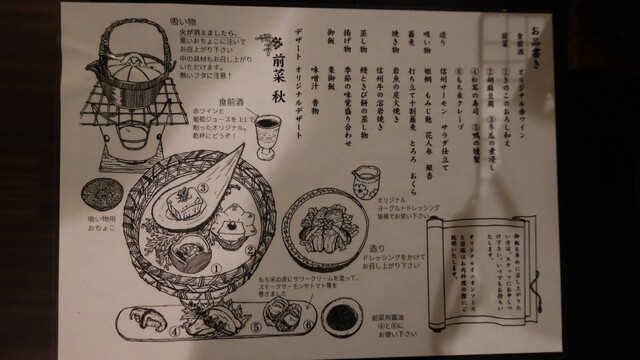 お品書き
食前酒 オリジナル赤ワイン
前菜 ①きのこのおろし和え
②胡麻豆腐 ③冬瓜の煮浸し
④松茸の寿司 ⑤鴨の燻製
⑥もち米クレープ
造り 信州サーモン サラダ仕立て
吸い物 姫鯛 もみじ麩 花人参 銀杏
蕎麦 打ち立て十割蕎麦 とろろ おくら
焼き物 岩魚の炭火焼き
信州牛の溶岩焼き
蒸し物 鰻ときび餅の蒸し物
揚げ物 季節の味覚盛り合わせ
御飯 栗御飯
味噌汁 香物
デザート オリジナルデザート
前菜 秋
吸い物
火が消えましたら、
黒いおちょこに注いで
お召し上がり下さい
中の具材もお召し上がり
いただけます。
熱いフタに注意！
食前酒
赤ワインと
葡萄ジュースを1:1で
割ったオリジナル。
乾杯にどうぞ！
吸い物用
おちょこ
③
②
①
オリジナル
ヨーグルトドレッシング
皆様でお使い下さい
造り
ドレッシングをかけて
お召し上がり下さい
もち米の皮にサワークリームを塗って、
スモークサーモンやトマト等を
巻きました
④
⑤
⑥
前菜用醤油
④と⑥に
お使い下さい
御飯を早めに召し上がりた
い方は、スタッフにお申しつ
け下さい。いつでもお持ちい
たします。